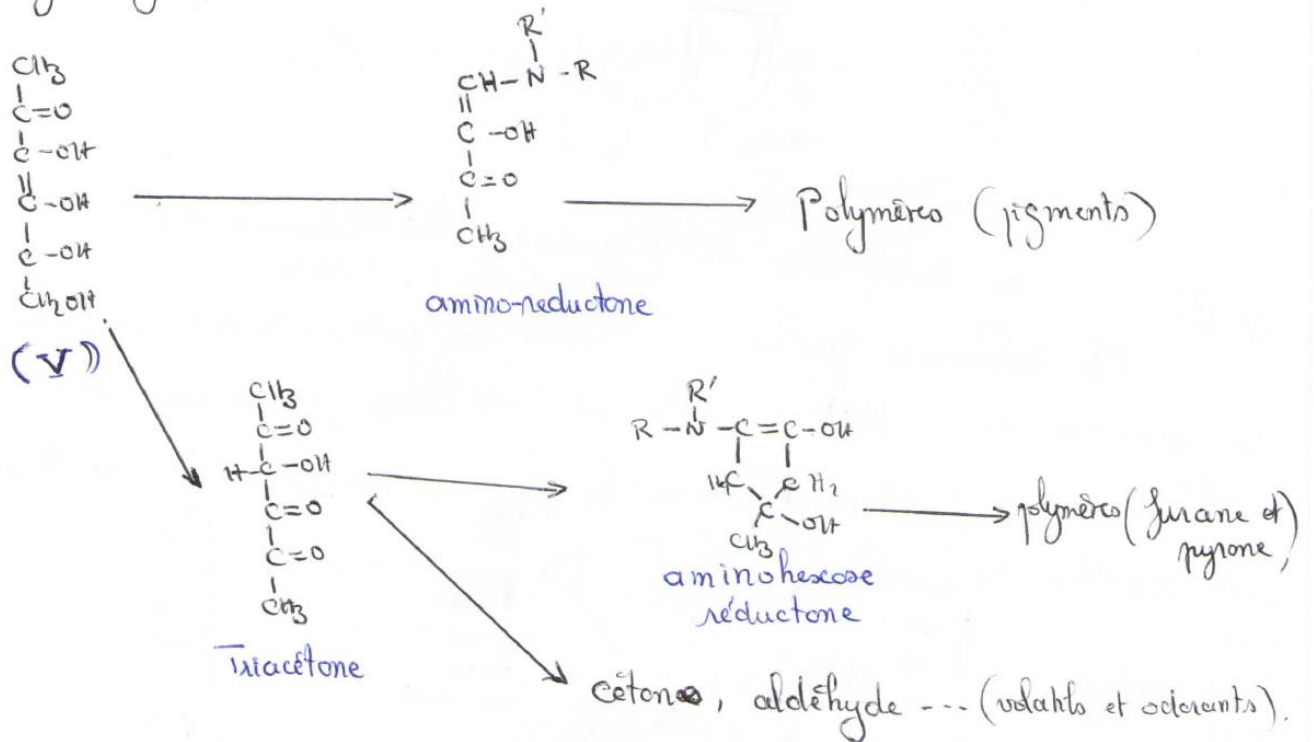 CH3
C=O
C-OH
C-OH
C-OH
CH2OH
(V)
R'
CH-N-R
C-OH
C=O
CH3
amino-reductone
Polymères (pigments)
CH3
C=O
H-C-OH
C=O
C=O
CH3
Triacétone
R'
R-N-C=C-OH
C H2
C-OH
CH3
aminohexose
réductone
polymères (furane et
pyrone)
cétone, aldéhyde --- (volatils et odorants).